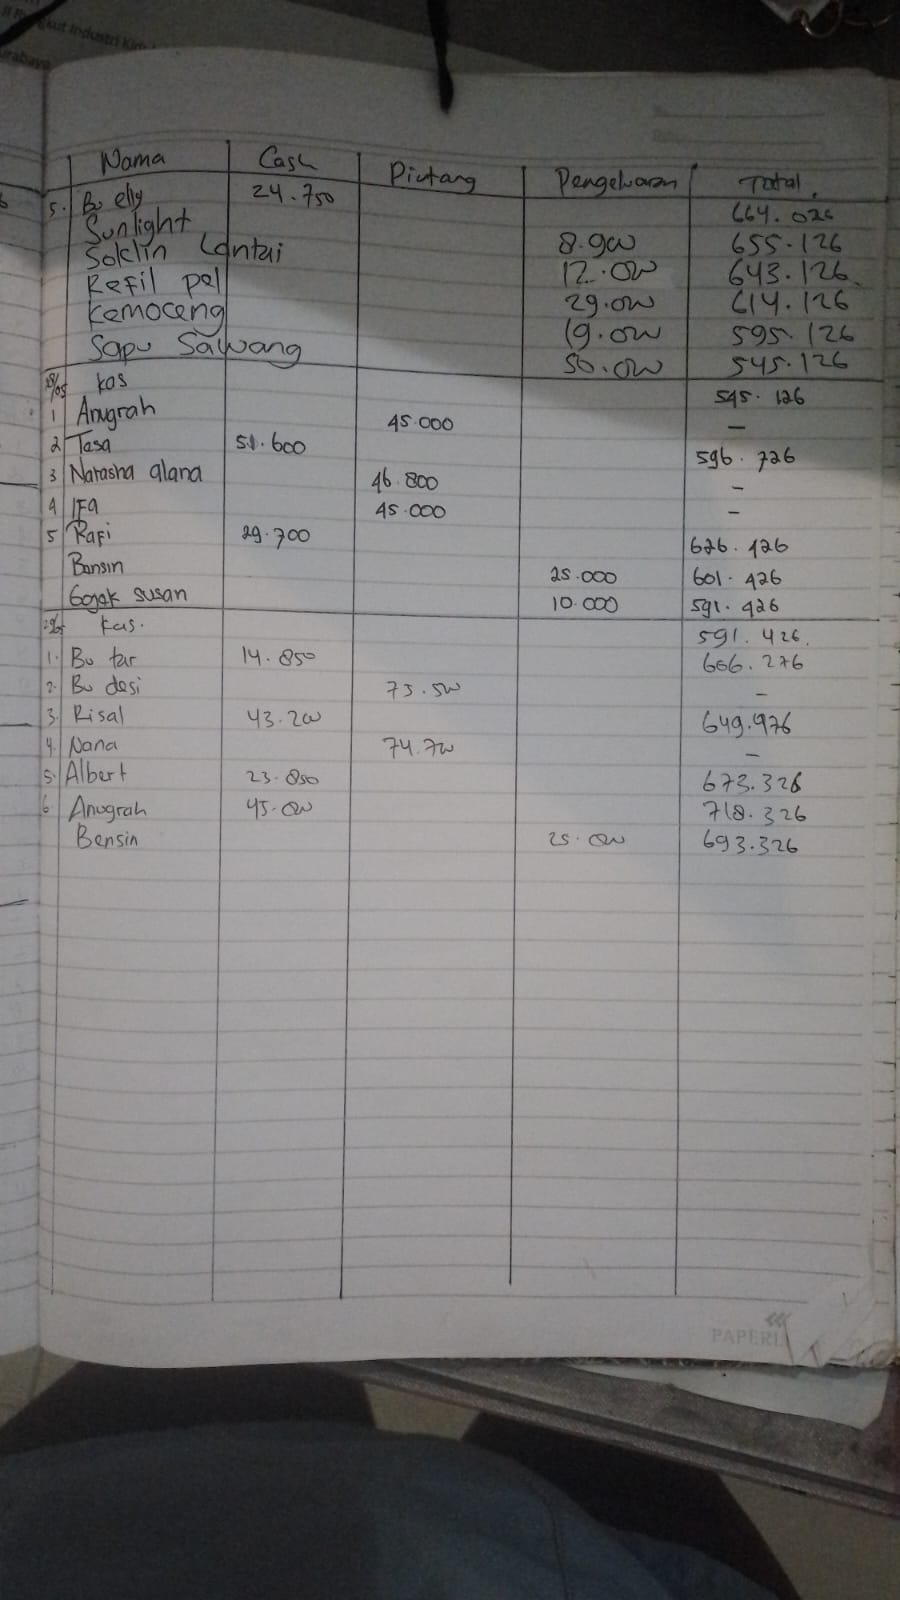 Jl Rungkut Industri Kidul
Surabaya
Nama Cash Piutang Pengeluaran Total
5. Bu elly 24.750 664.026
Sunlight 8.900 655.126
Soklin Lantai 12.000 643.126
Refil pel 29.000 614.126
Kemoceng 19.000 595.126
Sapu Sawang 50.000 545.126
28/05 kas 545.126
1 Anugrah 45.000 –
2 Tasa 51.600 596.726
3 Natasha alana 46.800 –
4 IFa 45.000 –
5 Rafi 29.700 626.426
Bensin 25.000 601.426
Gojek susan 10.000 591.426
kas. 591.426.
1. Bu tar 14.850 606.276
2. Bu desi 73.500 –
3. Risal 43.200 649.976
4. Nana 74.700 –
5. Albert 23.850 673.326
6 Anugrah 45.000 718.326
Bensin 25.000 693.326
PAPERL